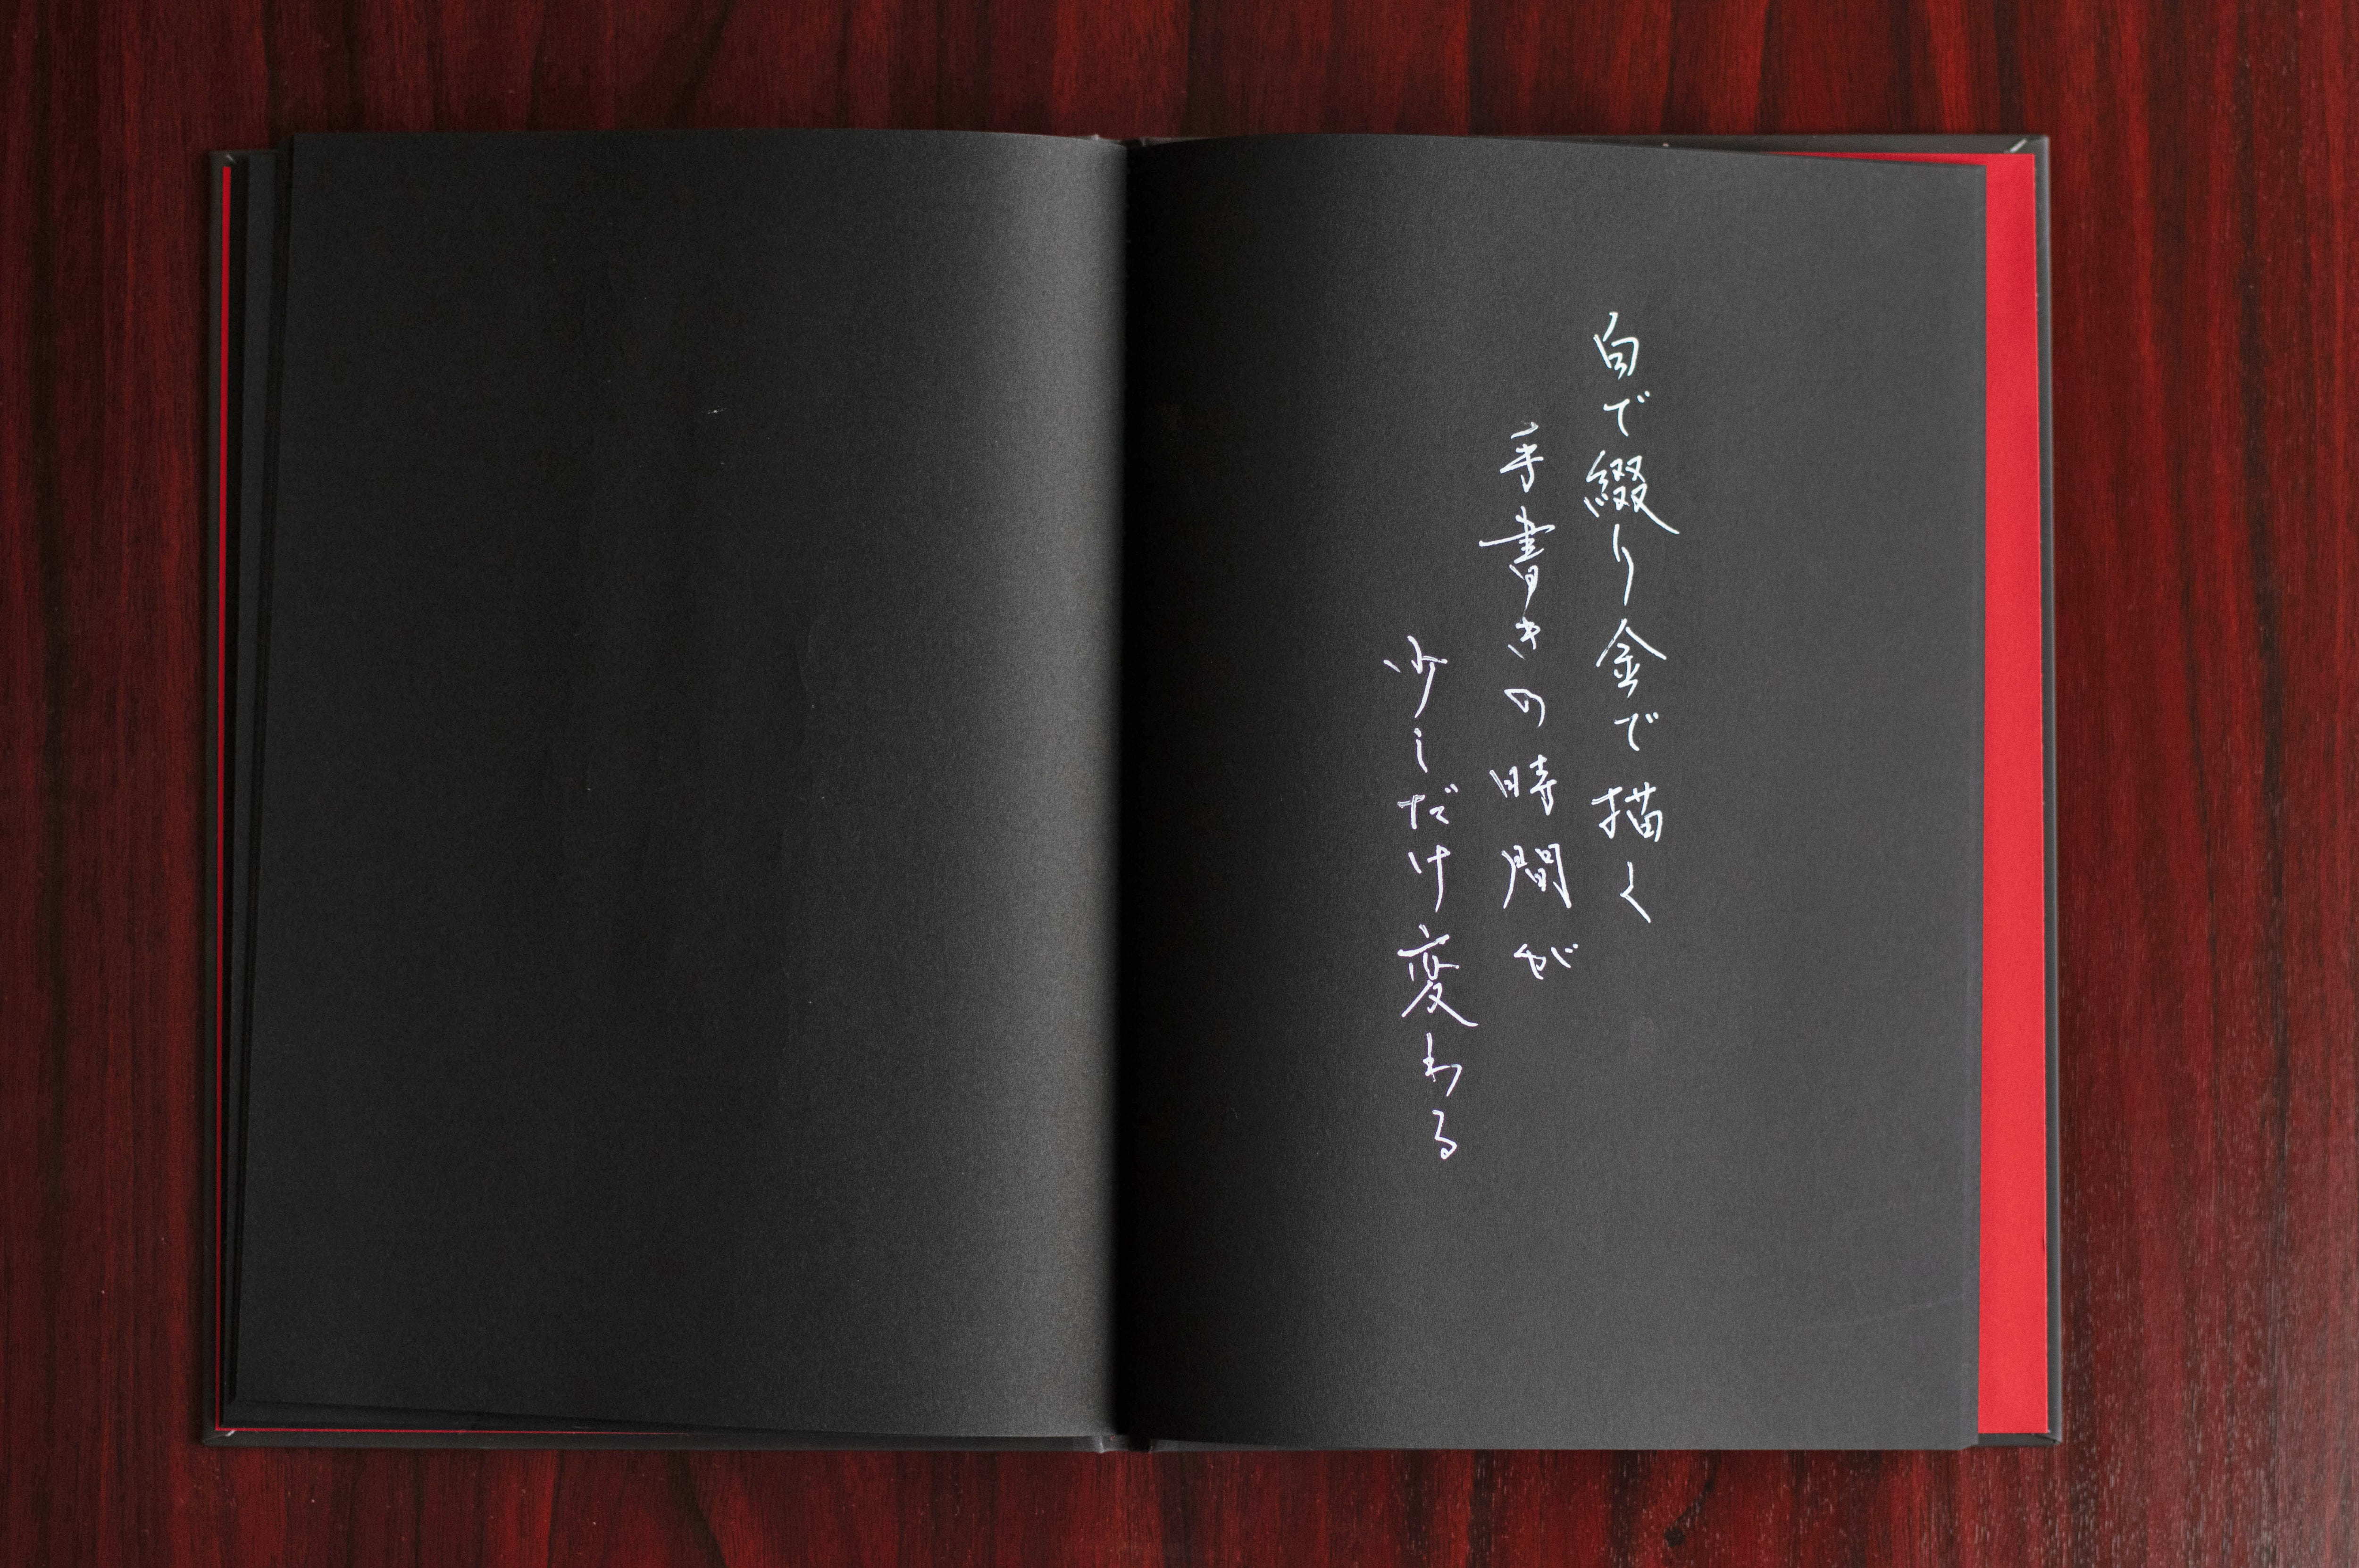 白で綴り金で描く
手書きの時間が
少しだけ変わる